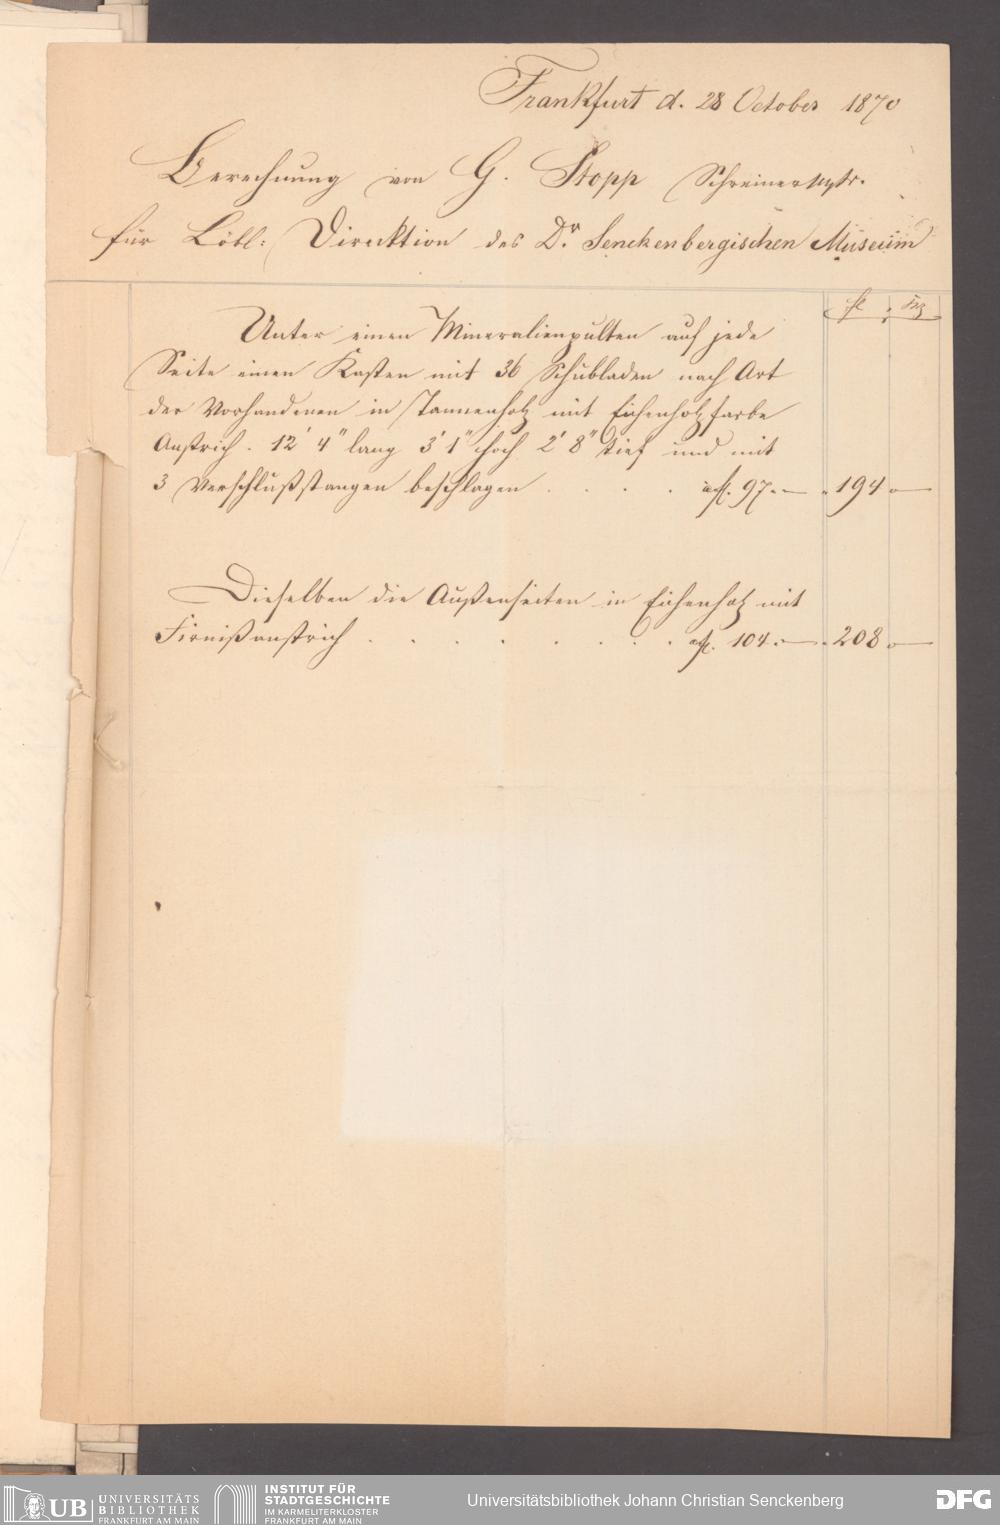 Frankfurt d. 28 October 1870
Berechnung von G. Stopp Schreinermstr.
für Löbl: Direktion des Dr. Senckenbergischen Museum
fl xr
Unter einen Mineralienpulten auf jede
Seite einen Kasten mit 36 Schubladen nach Art
der Vorhandenen in Tannenholz mit Eichenholzfarbe
Anstrich. 12' 4" lang 3' 1" hoch 2' 8" tief und mit
3 Verschlußstangen beschlagen . . . . à fl. 97.— 194 —
Dieselben die Außenseiten in Eichenholz mit
Firnißanstrich . . . . . . . à fl. 104.— 208 —
UB UNIVERSITÄTS
BIBLIOTHEK
FRANKFURT AM MAIN
INSTITUT FÜR
STADTGESCHICHTE
IM KARMELITERKLOSTER
FRANKFURT AM MAIN
Universitätsbibliothek Johann Christian Senckenberg
DFG